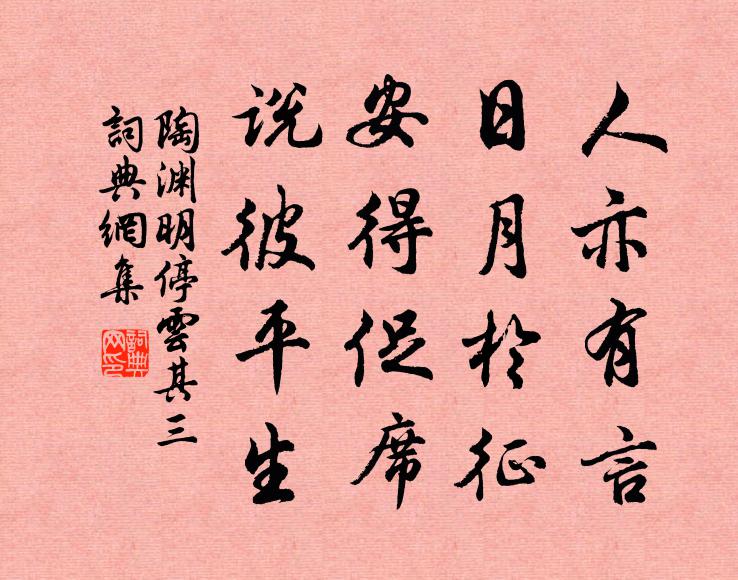 人亦有言
日月於征
安得促席
说彼平生
陶渊明停雲其三
詞典網集
詞典網印